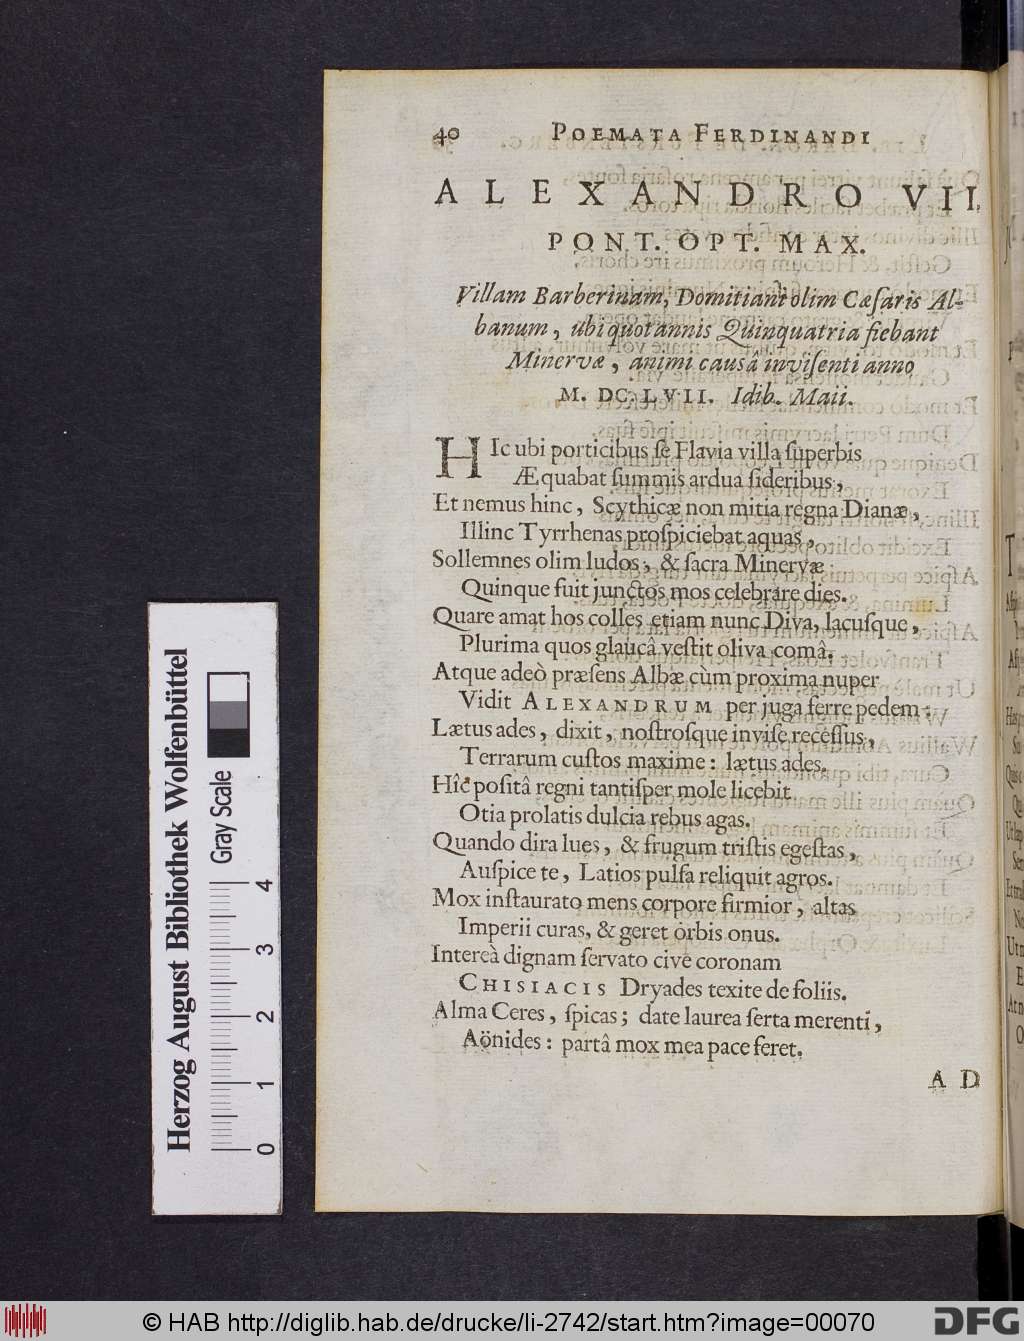 40 POEMATA FERDINANDI
ALEXANDRO VII.
PONT. OPT. MAX.
Villam Barberinam, Domitiani olim Cæſaris Al-
banum, ubi quotannis Quinquatria fiebant
Minervæ, animi causâ inviſenti anno
M. DC. LVII. Idib. Maii.
HIc ubi porticibus ſe Flavia villa ſuperbis
Æquabat ſummis ardua ſideribus,
Et nemus hinc, Scythicæ non mitia regna Dianæ,
Illinc Tyrrhenas proſpiciebat aquas,
Sollemnes olim ludos, & ſacra Minervæ
Quinque fuit junctos mos celebrare dies.
Quare amat hos colles etiam nunc Diva, lacuſque,
Plurima quos glaucâ veſtit oliva comâ.
Atque adeò præſens Albæ cùm proxima nuper
Vidit ALEXANDRUM per juga ferre pedem:
Lætus ades, dixit, noſtroſque inviſe receſſus,
Terrarum cuſtos maxime: lætus ades.
Hîc poſitâ regni tantiſper mole licebit
Otia prolatis dulcia rebus agas.
Quando dira lues, & frugum triſtis egeſtas,
Auſpice te, Latios pulſa reliquit agros.
Mox inſtaurato mens corpore firmior, altas
Imperii curas, & geret orbis onus.
Intereà dignam ſervato cive coronam
CHISIACIS Dryades texite de foliis.
Alma Ceres, ſpicas; date laurea ſerta merenti,
Aönides: partâ mox mea pace feret.
AD
Herzog August Bibliothek Wolfenbüttel
Gray Scale
0 1 2 3 4
© HAB http://diglib.hab.de/drucke/li-2742/start.htm?image=00070
DFG